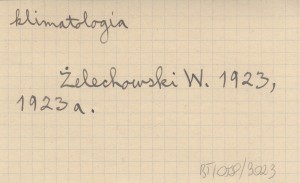 klimatologia
Żelechowski W. 1923,
1923a.
BT/OTP/3023